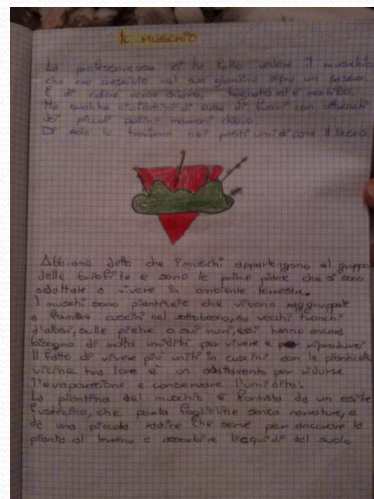 IL MUSCHIO
La professoressa ci ha fatto vedere il muschio
che era cresciuto nel suo giardino sopra un sasso.
È di colore verde chiaro, bagnato ed è morbido.
Ha qualche di di fuori con attaccati
dei piccoli marroni chiaro.
solo lo troviamo nei posti umidi come il bosco
Abbiamo detto che i muschi appartengono al gruppo
delle briofite e sono le prime piante che si sono
adattate a vivere in ambiente terrestre.
I muschi sono piantitelle che vivono raggruppate
a formare cuscini nel sottobosco, su vecchi tronchi
d'alberi, sulle pietre o sui muri, essi hanno ancora
bisogno di molta umidità per vivere e riprodursi
Il fatto di vivere più uniti in cuscini con le pianticelle
vicine tra loro è un adattamento per ridurre
l'evaporazione e conservare l'umidità.
La piantina del muschio è formata da un esile
fusticino, che porta foglioline senza nervature, e
da una piccola radice che serve per ancorare la
pianta al terreno e assorbire liquidi del suolo